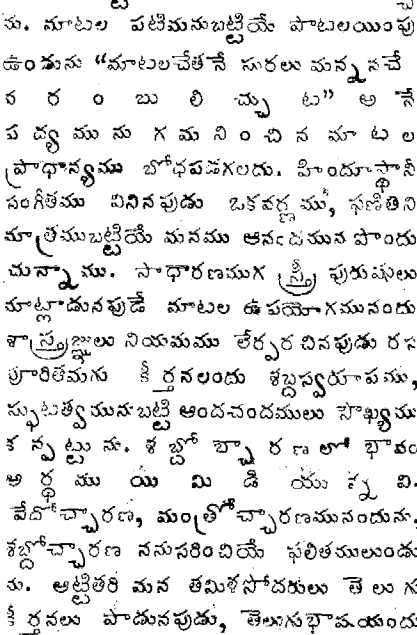 ను. మాటల పటిమనుబట్టియే పాటలయింపు
ఉండును “మాటలచేతనే సురలు మన్నననచే
వ ర ం బు లి చ్చు ట” అ నే
ప ద్య ము ను గ మ ని ం చి న మా ట ల
ప్రాధాన్యము బోధపడగలదు. హిందూస్థానీ
సంగీతము వినినపుడు ఒకవర్ణము, ఫణితిని
మాత్రముబట్టియే మనము ఆనందమున పొందు
చున్నాము. సాధారణముగ స్త్రీ పురుషులు
మాట్లాడునపుడే మాటల ఉపయోగమునందు
శాస్త్రజ్ఞులు నియమము లేర్పరచినపుడు రస
పూరితమగు కీర్తనలందు శబ్దస్వరూపము,
స్ఫుటత్వమునుబట్టి ఆందచందములు సౌఖ్యము
క న్ప ట్టు ను. శ బ్దో చ్ఛా ర ణ లో భావం
అ ర్థ ము యి మి డి యు న్న వి.
వేదోచ్ఛారణ, మంత్రోచ్ఛారణమునందును,
శబ్దోచ్ఛారణ ననుసరించియే ఫలితములుండు
ను. అట్టితరి మన తమిళసోదరులు తెలుగు
కీర్తనలు పాడునపుడు, తెలుగుభాషయందు